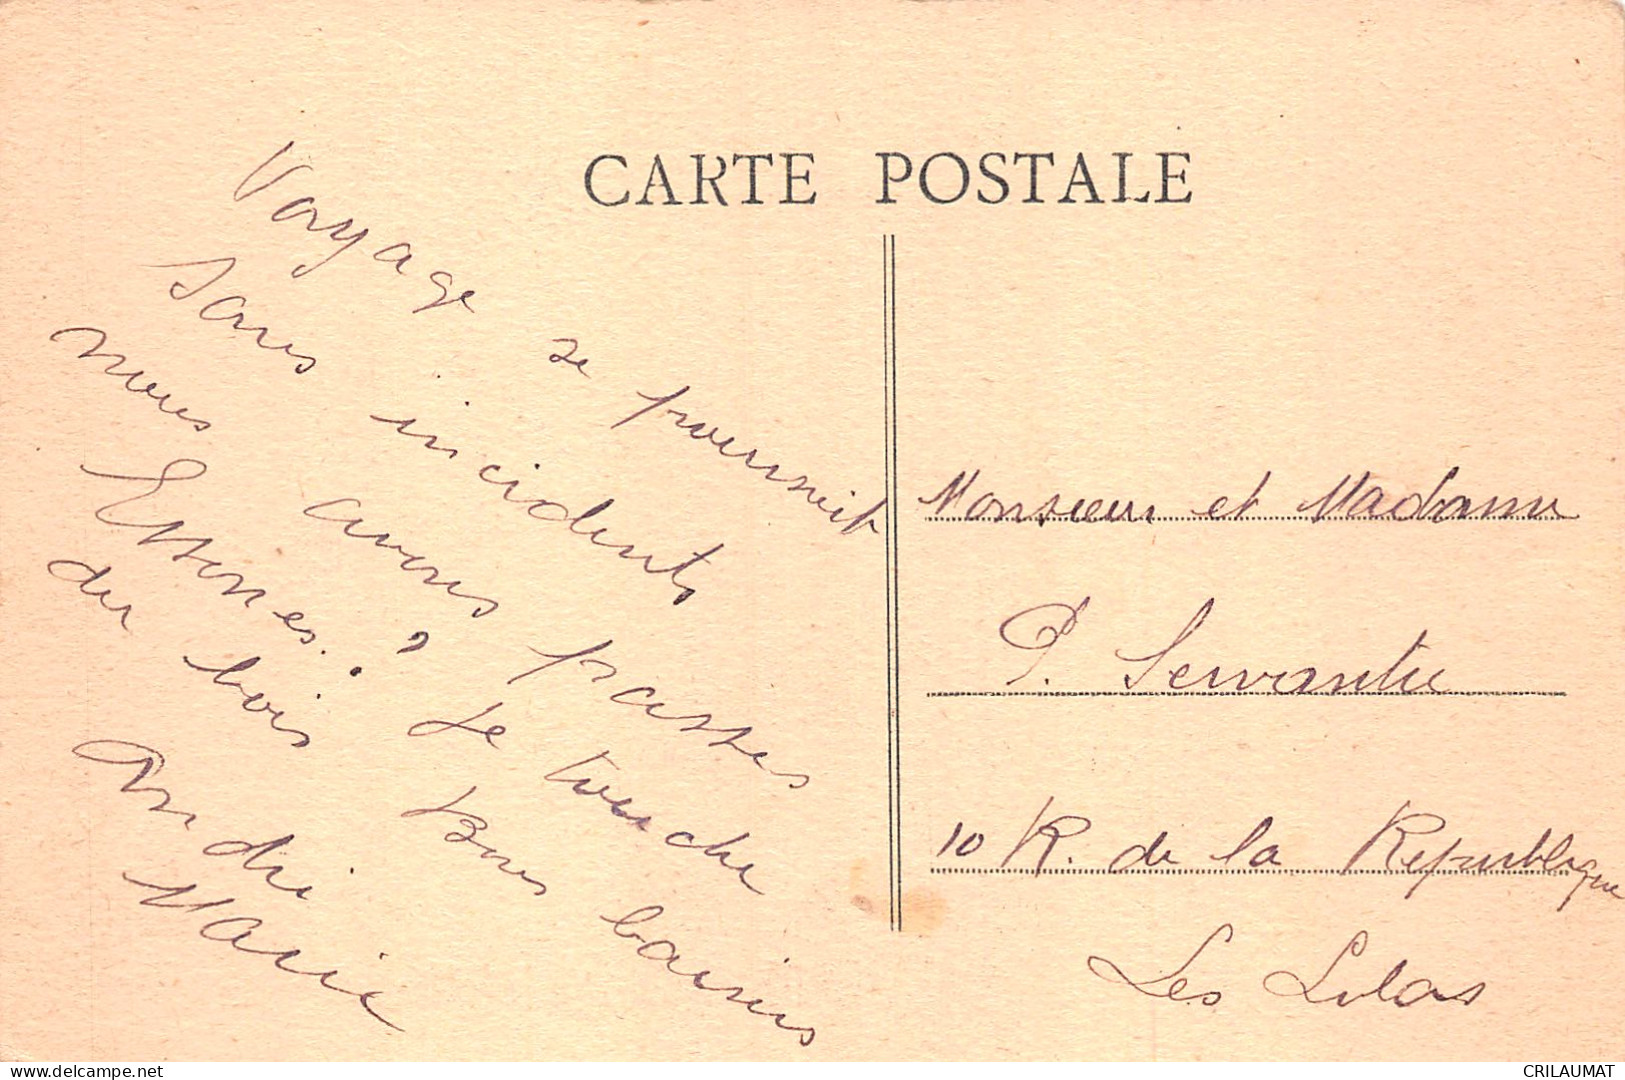 CARTE POSTALE
Voyage se poursuit
sans incidents
nous avons passes
Essonnes..? Je touche
du bois Bons baisers
André
Marie
Monsieur et Madame
P. Servantie
10 R. de la République
Les Lilas
www.delcampe.net
CRILAUMAT